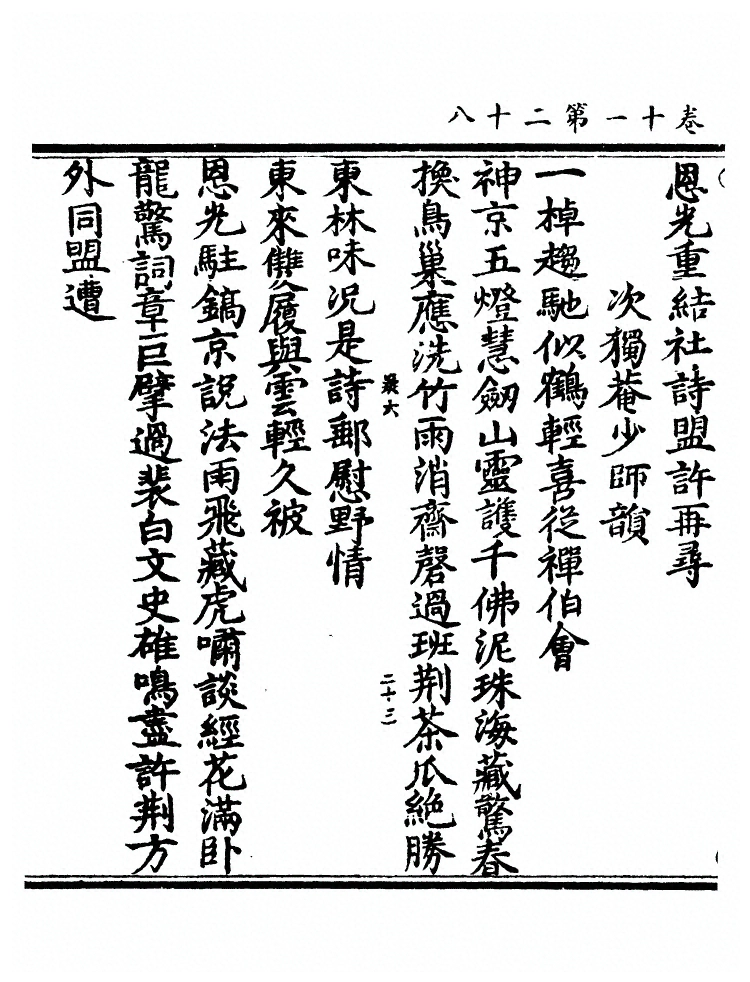 卷十一第二十八
恩光重結社詩盟許再尋
次獨菴少師韻
一棹趨馳似鶴輕喜從禪伯會
神京五燈慧劒山靈護千佛泥珠海藏驚春
換鳥巢應洗竹雨消齋磬過班荆茶瓜絶勝
叢六
二十三
東林味況是詩郵慰野情
東來雙履與雲輕久被
恩光駐鎬京説法雨飛藏虎嘯談經花滿卧
龍驚詞章巨擘過裴白文史雄鳴盡許荆方
外同盟遭